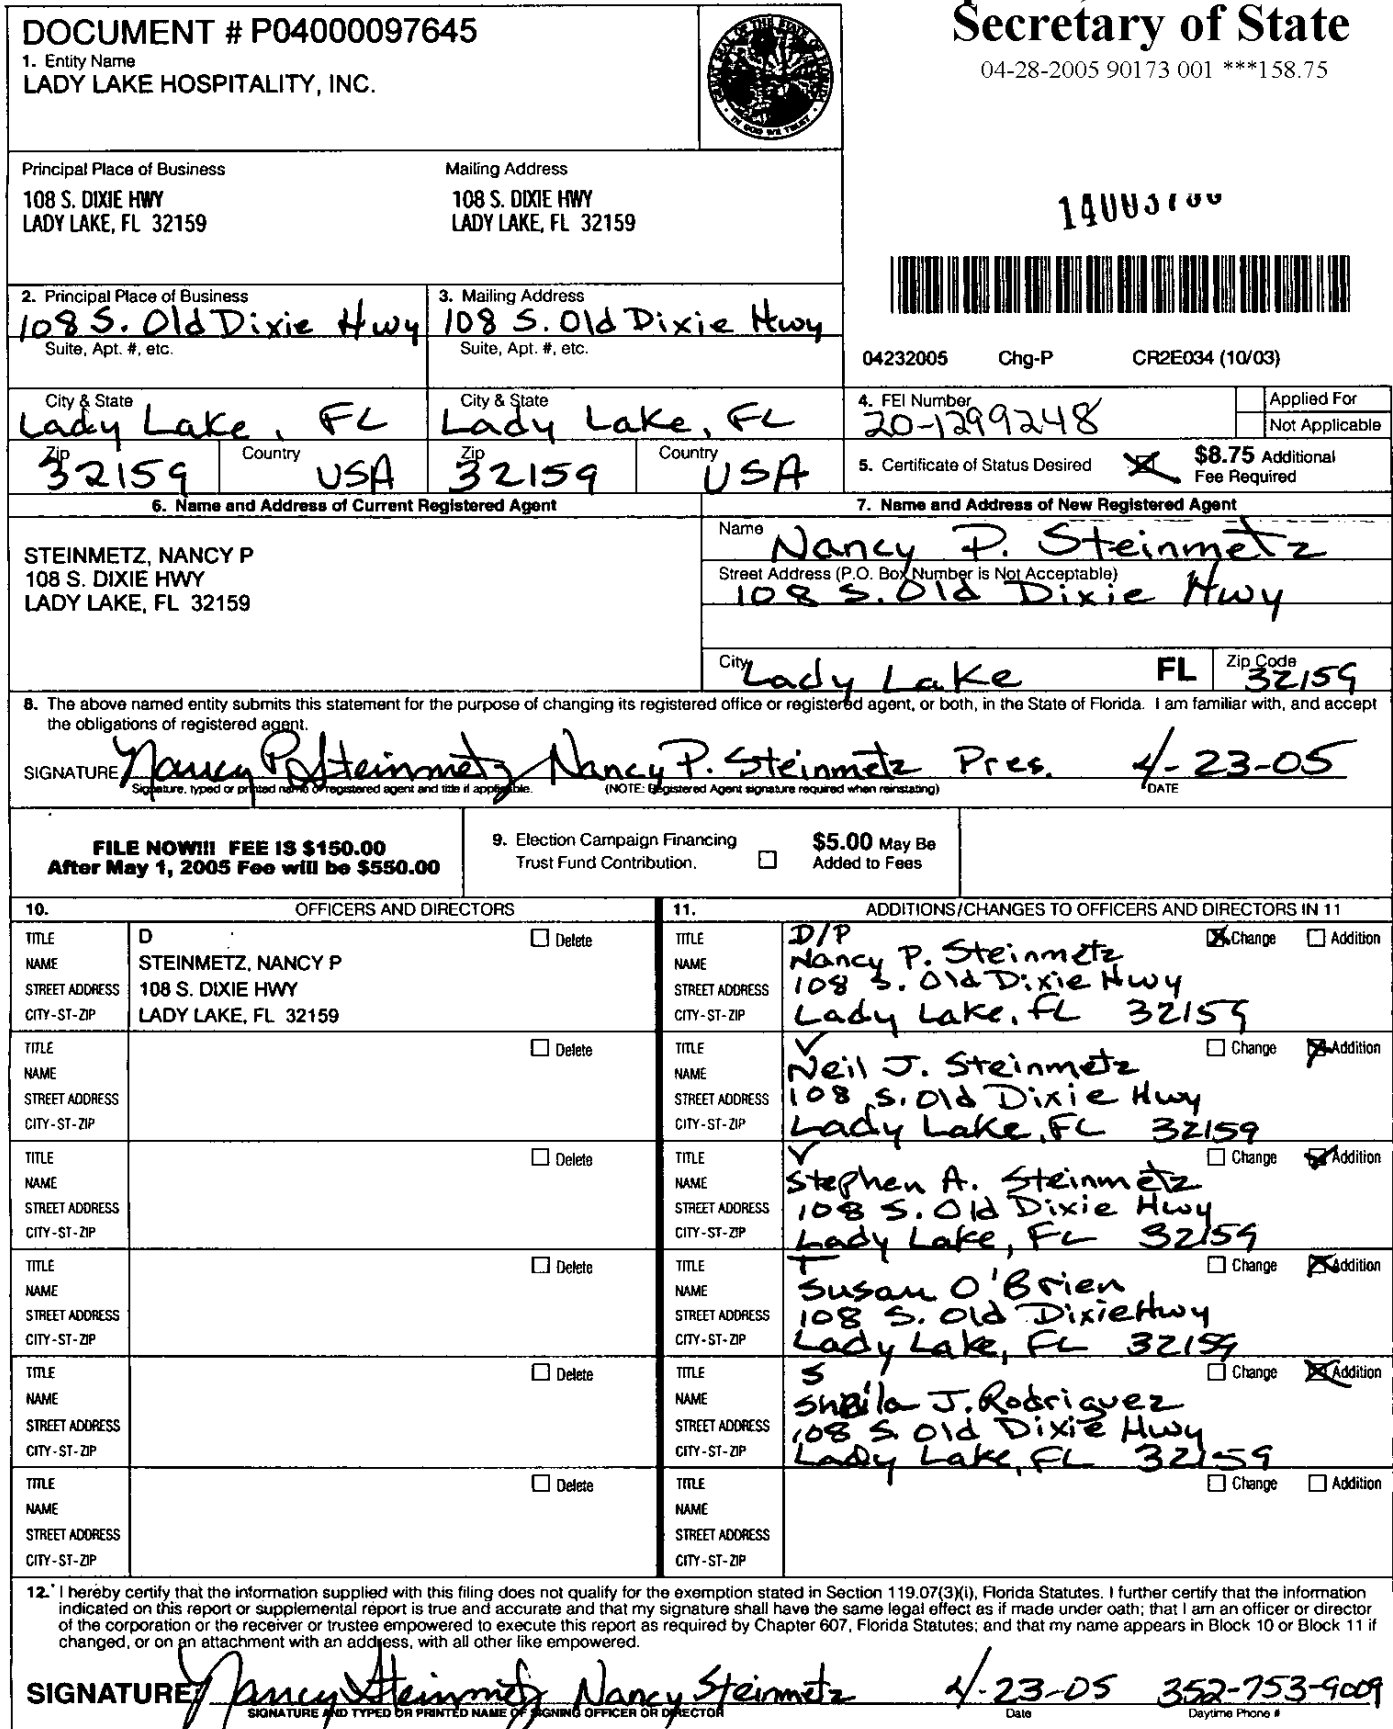 DOCUMENT # P04000097645
1. Entity Name
LADY LAKE HOSPITALITY, INC.
Secretary of State
04-28-2005 90173 001 ***158.75
Principal Place of Business
108 S. DIXIE HWY
LADY LAKE, FL 32159
Mailing Address
108 S. DIXIE HWY
LADY LAKE, FL 32159
2. Principal Place of Business
108 S. Old Dixie Hwy
Suite, Apt. #, etc.
City & State
Lady Lake, FL
Zip
32159
Country
USA
3. Mailing Address
108 S. Old Dixie Hwy
Suite, Apt. #, etc.
City & State
Lady Lake, FL
Zip
32159
Country
USA
04232005 Chg-P CR2E034 (10/03)
4. FEI Number
20-1299248
Applied For
Not Applicable
5. Certificate of Status Desired
$8.75 Additional
Fee Required
6. Name and Address of Current Registered Agent
STEINMETZ, NANCY P
108 S. DIXIE HWY
LADY LAKE, FL 32159
7. Name and Address of New Registered Agent
Name
Nancy P. Steinmetz
Street Address (P.O. Box Number is Not Acceptable)
108 S. Old Dixie Hwy
City
Lady Lake
FL
Zip Code
32159
8. The above named entity submits this statement for the purpose of changing its registered office or registered agent, or both, in the State of Florida. I am familiar with, and accept
the obligations of registered agent.
SIGNATURE Nancy P Steinmetz Nancy P. Steinmetz Pres. 4-23-05
Signature, typed or printed name of registered agent and title if applicable. (NOTE: Registered Agent signature required when reinstating) DATE
FILE NOW!!! FEE IS $150.00
After May 1, 2005 Fee will be $550.00
9. Election Campaign Financing
Trust Fund Contribution.
$5.00 May Be
Added to Fees
10. OFFICERS AND DIRECTORS
TITLE D Delete
NAME STEINMETZ, NANCY P
STREET ADDRESS 108 S. DIXIE HWY
CITY-ST-ZIP LADY LAKE, FL 32159
TITLE Delete
NAME
STREET ADDRESS
CITY-ST-ZIP
TITLE Delete
NAME
STREET ADDRESS
CITY-ST-ZIP
TITLE Delete
NAME
STREET ADDRESS
CITY-ST-ZIP
TITLE Delete
NAME
STREET ADDRESS
CITY-ST-ZIP
TITLE Delete
NAME
STREET ADDRESS
CITY-ST-ZIP
11. ADDITIONS/CHANGES TO OFFICERS AND DIRECTORS IN 11
TITLE D/P Change Addition
NAME Nancy P. Steinmetz
STREET ADDRESS 108 S. Old Dixie Hwy
CITY-ST-ZIP Lady Lake, FL 32159
TITLE V Change Addition
NAME Neil J. Steinmetz
STREET ADDRESS 108 S. Old Dixie Hwy
CITY-ST-ZIP Lady Lake, FL 32159
TITLE V Change Addition
NAME Stephen A. Steinmetz
STREET ADDRESS 108 S. Old Dixie Hwy
CITY-ST-ZIP Lady Lake, FL 32159
TITLE T Change Addition
NAME Susan O'Brien
STREET ADDRESS 108 S. Old Dixie Hwy
CITY-ST-ZIP Lady Lake, FL 32159
TITLE S Change Addition
NAME Sheila J. Rodriguez
STREET ADDRESS 108 S. Old Dixie Hwy
CITY-ST-ZIP Lady Lake, FL 32159
TITLE Change Addition
NAME
STREET ADDRESS
CITY-ST-ZIP
12. I hereby certify that the information supplied with this filing does not qualify for the exemption stated in Section 119.07(3)(i), Florida Statutes. I further certify that the information
indicated on this report or supplemental report is true and accurate and that my signature shall have the same legal effect as if made under oath; that I am an officer or director
of the corporation or the receiver or trustee empowered to execute this report as required by Chapter 607, Florida Statutes; and that my name appears in Block 10 or Block 11 if
changed, or on an attachment with an address, with all other like empowered.
SIGNATURE: Nancy Steinmetz Nancy Steinmetz 4-23-05 352-753-9009
SIGNATURE AND TYPED OR PRINTED NAME OF SIGNING OFFICER OR DIRECTOR Date Daytime Phone #